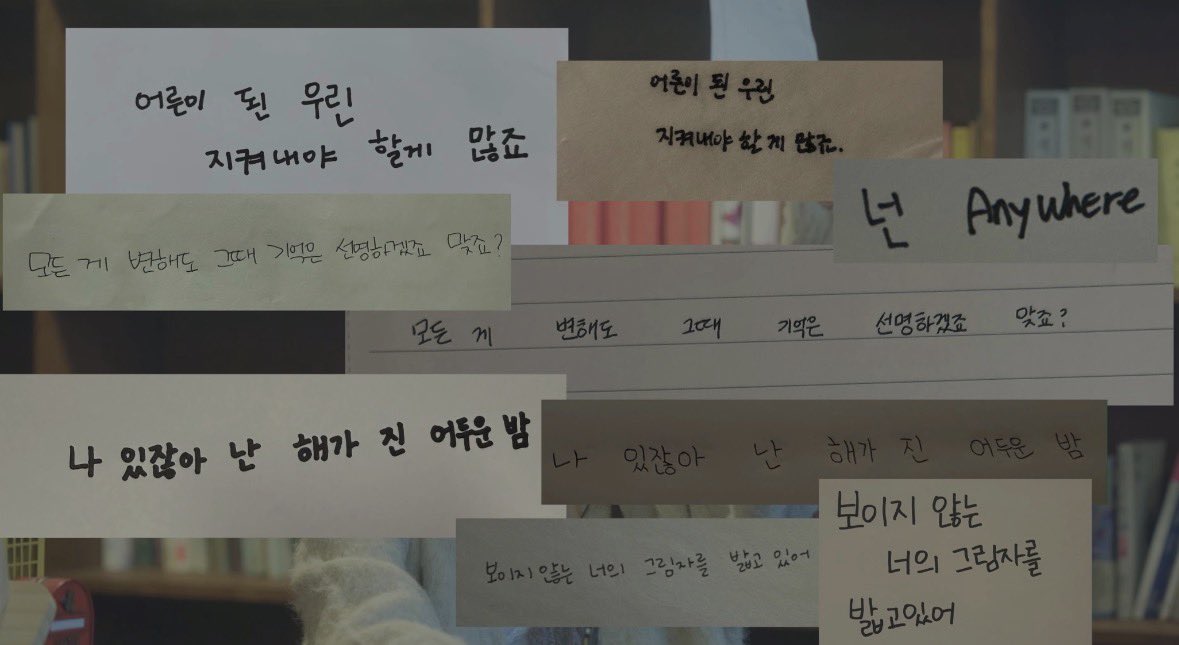 어른이 된 우린
지켜내야 할게 많죠
어른이 된 우린
지켜내야 할 게 많죠.
넌 Anywhere
모든 게 변해도 그때 기억은 선명하겠죠 맞죠?
모든 게 변해도 그때 기억은 선명하겠죠 맞죠?
나 있잖아 난 해가 진 어두운 밤
나 있잖아 난 해가 진 어두운 밤
보이지 않는 너의 그림자를 밟고 있어
보이지 않는
너의 그림자를
밟고있어